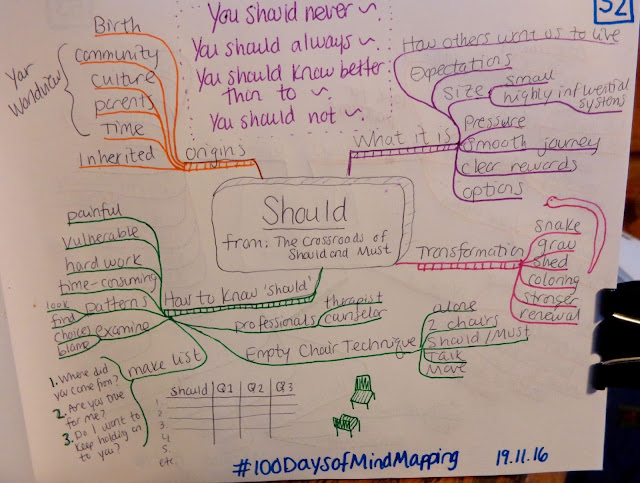 52
You should never ~.
You should always ~.
You should know better
than to ~.
You should not ~.
Your
Worldview
Birth
community
culture
parents
Time
Inherited
origins
What it is
How others want us to live
Expectations
size
small
highly influential
systems
Pressure
smooth journey
clear rewards
options
Should
from: The Crossroads of
Should and Must
Transformation
snake
grow
shed
coloring
stronger
renewal
How to Know 'should'
painful
vulnerable
hard work
time-consuming
patterns
look
find
examine
choices
blame
make list
1. Where did
you come from?
2. Are you true
for me?
3. Do I want to
keep holding on
to you?
professionals
therapist
counselor
Empty Chair Technique
alone
2 chairs
Should/Must
Talk
Move
Should Q1 Q2 Q3
1.
2.
3.
4.
5.
etc.
#100DaysofMindMapping 19.11.16